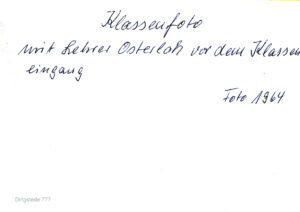 Klassenfoto
mit Lehrer Osterloh vor dem Klassen
eingang
Foto 1964